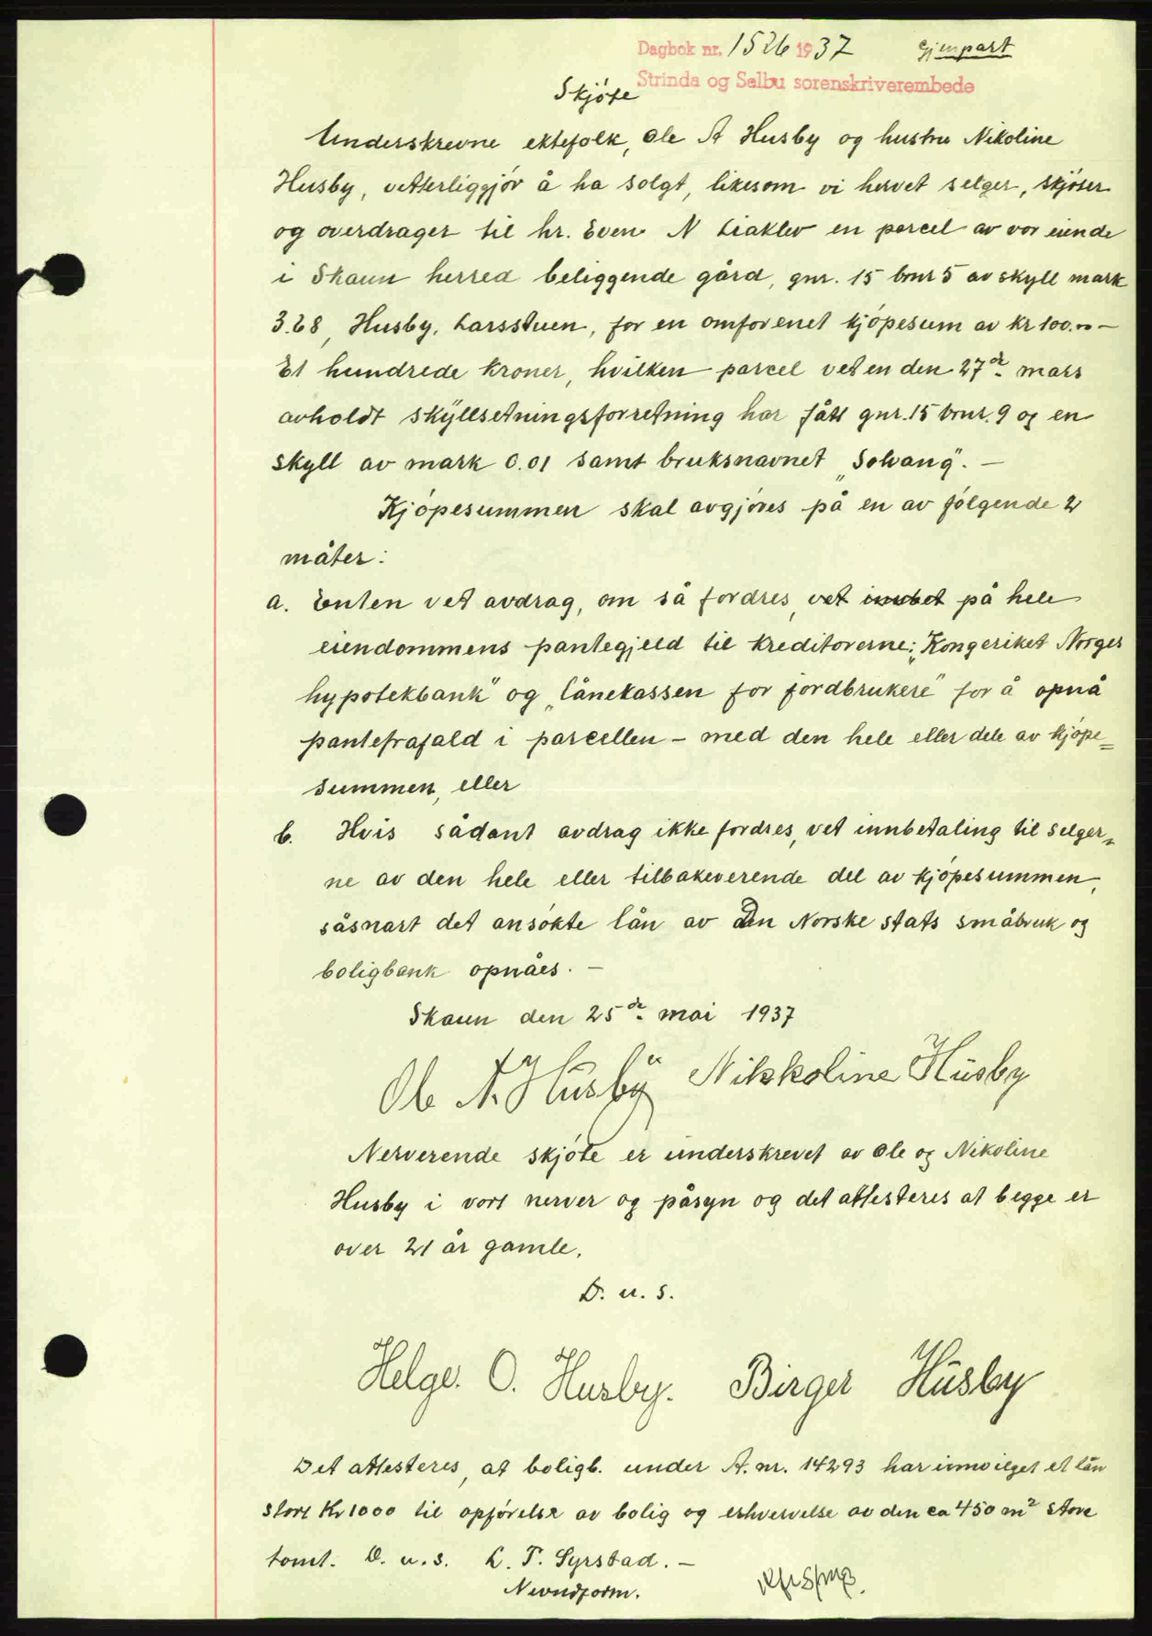 Dagbok nr. 1526 1937 Gjenpart
Strinda og Selbu sorenskriverembede
Skjöte
Underskrevne ektefolk, Ole A Husby og hustru Nikoline
Husby, vitterliggjör å ha solgt, likesom vi hervet selger, skjöter
og overdrager til hr. Even N Liaklev en parcel av vor eiende
i Skaun herred beliggende gård, gnr. 15 bnr 5 av skyll mark
3.28, Husby, Larsstuen, for en omforenet kjöpesum av kr 100.00 —
Et hundrede kroner, hvilken parcel vet en den 27de mars
avholdt skyllsetningsforretning har fått gnr. 15 bnr. 9 og en
skyll av mark 0.01 samt bruksnavnet „Solvang". —
Kjöpesummen skal avgjöres på en av fölgende 2
måter:
a. Enten vet avdrag, om så fordres, på hele
eiendommens pantegjeld til kreditorerne: „Kongeriket Norges
hypotekbank" og „Lånekassen for jordbrukere" for å opnå
pantefrafald i parcellen - med den hele eller dele av kjöpe=
summen, eller
b. Hvis sådant avdrag ikke fordres, vet innbetaling til selger„
ne av den hele eller tilbakeverende del av kjöpesummen,
såsnart det ansökte lån av Den Norske stats småbruk og
boligbank opnåes. —
Skaun den 25de mai 1937
Ole A. Husby Nikkoline Husby
Nerverende skjöte er underskrevet av Ole og Nikoline
Husby i vort nerver og påsyn og det attesteres at begge er
over 21 år gamle.
D. u. s.
Helge. O. Husby. Birger Husby
Det attesteres, at boligb. under A. nr. 14293 har innvilget et lån
stort Kr 1000 til opförelse av bolig og erhvervelse av den ca 450 m² store
tomt. D. u. s. L. T. Syrstad. —
Nevndform.